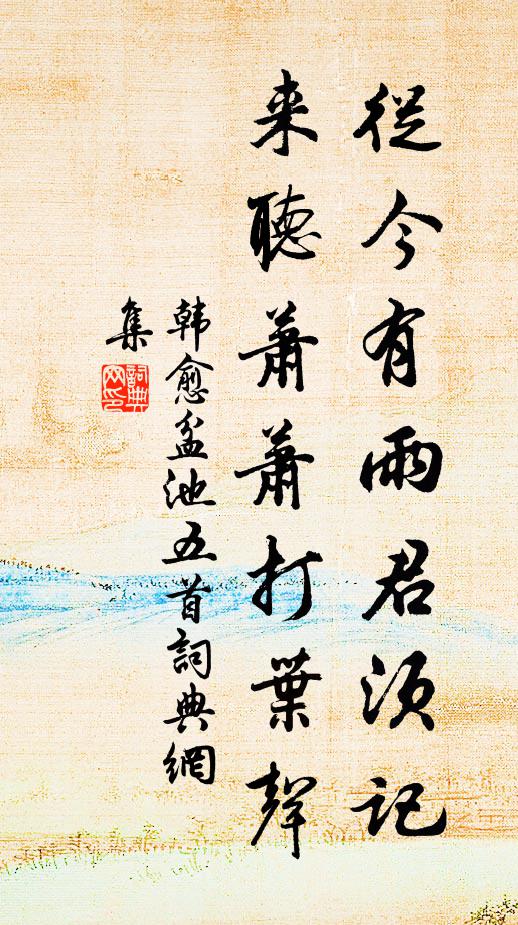 從今有雨君須记
来聽蕭蕭打葉聲
韩愈盆池五首詞典網
集
詞典
网印